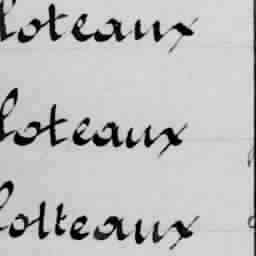 loteaux
loteaux
lolteaux